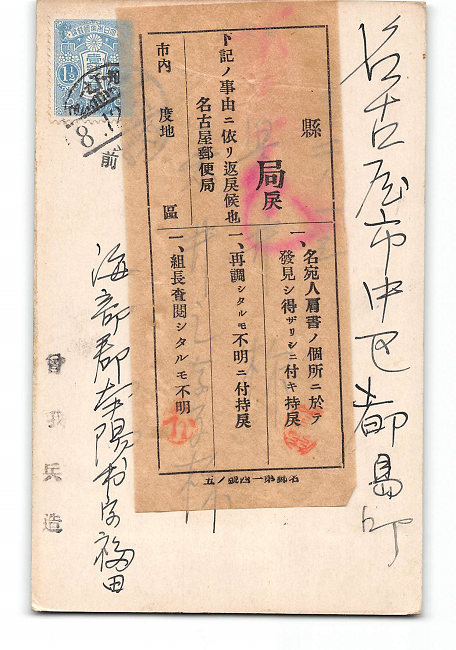 名古屋市中区都島町
縣
局戻
下記ノ事由ニ依リ返戻候也
名古屋郵便局
市内
度地
區
一、名宛人肩書ノ個所ニ於テ
發見シ得ザリシニ付キ持戻
一、再調シタルモ不明ニ付持戻
一、組長査閲シタルモ不明
名郵第一四號ノ五
1½
8
前
海部郡
字福田
曾我兵造